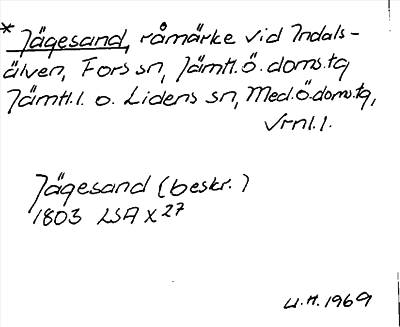 * Jägesand, råmärke vid Indals-
älven, Fors sn, Jämtl.ö.doms.tg
Jämtl.l. o. Lidens sn, Med.ö.doms.tg,
Vrnl.l.
Jägesand (beskr.)
1803 LSA X 27
U.H. 1969